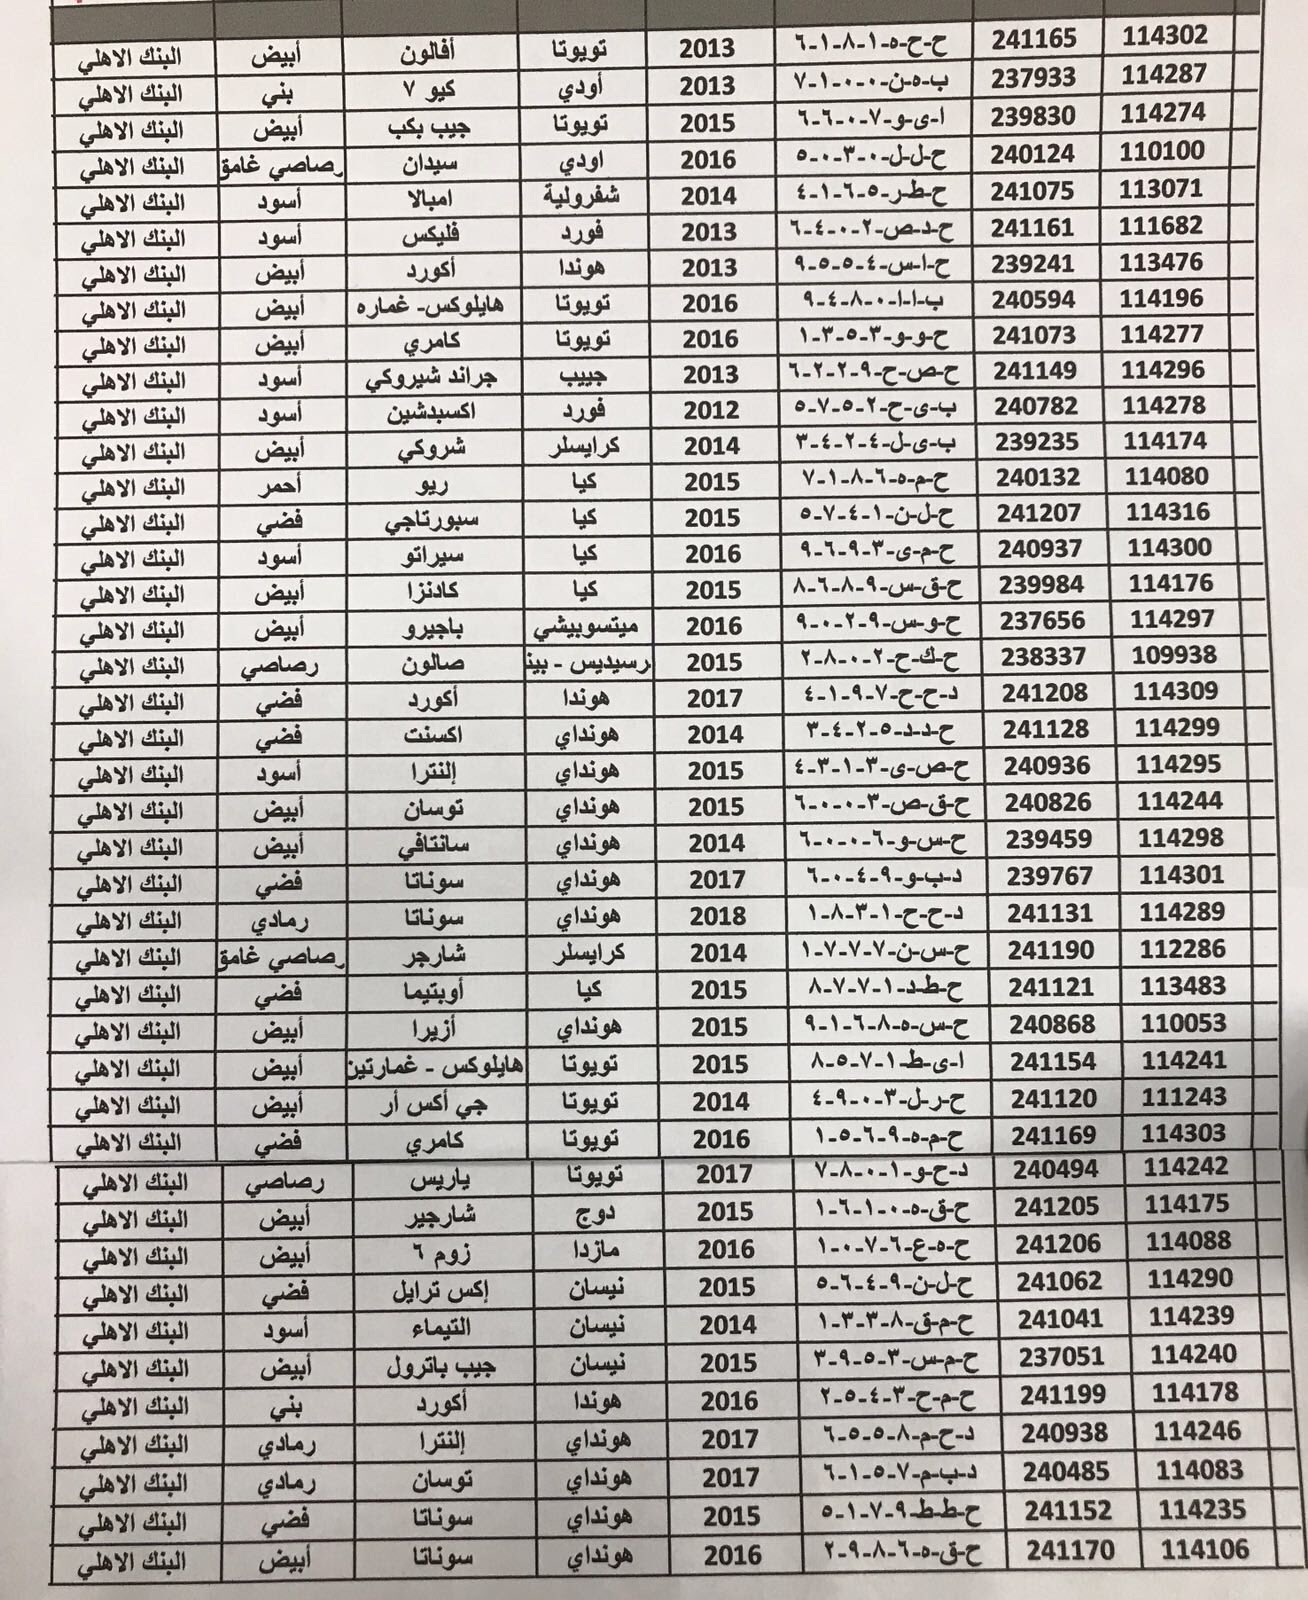 114302 241165 ح-ح-ه-١-٨-١-٦ 2013 تويوتا أفالون أبيض البنك الاهلي
114287 237933 ب-ه-ن-٠-٠-١-٧ 2013 أودي كيو ٧ بني البنك الاهلي
114274 239830 ا-ى-و-٧-٠-٦-٦ 2015 تويوتا جيب بكب أبيض البنك الاهلي
110100 240124 ح-ل-ل-٠-٣-٠-٥ 2016 اودي سيدان رصاصي غامق البنك الاهلي
113071 241075 ح-ط-ر-٥-٦-١-٤ 2014 شفرولية امبالا أسود البنك الاهلي
111682 241161 ح-د-ص-٢-٠-٤-٦ 2013 فورد فليكس أسود البنك الاهلي
113476 239241 ح-ا-س-٤-٥-٥-٩ 2013 هوندا أكورد أبيض البنك الاهلي
114196 240594 ب-ا-ا-٠-٨-٤-٩ 2016 تويوتا هايلوكس- غماره أبيض البنك الاهلي
114277 241073 ح-و-و-٣-٥-٣-١ 2016 تويوتا كامري أبيض البنك الاهلي
114296 241149 ح-ص-ح-٩-٢-٢-٦ 2013 جييب جراند شيروكي أسود البنك الاهلي
114278 240782 ب-ى-ح-٢-٥-٧-٥ 2012 فورد اكسبدشين أسود البنك الاهلي
114174 239235 ب-ى-ل-٤-٢-٤-٣ 2014 كرايسلر شروكي أبيض البنك الاهلي
114080 240132 ح-م-ه-٦-٨-١-٧ 2015 كيا ريو أحمر البنك الاهلي
114316 241207 ح-ل-ن-١-٤-٧-٥ 2015 كيا سبورتاجي فضي البنك الاهلي
114300 240937 ح-م-ى-٣-٩-٦-٩ 2016 كيا سيراتو أسود البنك الاهلي
114176 239984 ح-ق-س-٩-٨-٦-٨ 2015 كيا كادنزا أبيض البنك الاهلي
114297 237656 ح-و-س-٩-٢-٠-٩ 2016 ميتسوبيشي باجيرو أبيض البنك الاهلي
109938 238337 ح-ك-ح-٢-٠-٨-٢ 2015 رسيديس - بينـ صالون رصاصي البنك الاهلي
114309 241208 د-ح-ح-٧-٩-١-٤ 2017 هوندا أكورد فضي البنك الاهلي
114299 241128 ح-د-د-٥-٢-٤-٣ 2014 هونداي اكسنت فضي البنك الاهلي
114295 240936 ح-ص-ى-٣-١-٣-٤ 2015 هونداي إلنترا أسود البنك الاهلي
114244 240826 ح-ق-ص-٣-٠-٠-٦ 2015 هونداي توسان أبيض البنك الاهلي
114298 239459 ح-س-و-٦-٠-٠-٦ 2014 هونداي سانتافي أبيض البنك الاهلي
114301 239767 د-ب-و-٩-٤-٠-٦ 2017 هونداي سوناتا فضي البنك الاهلي
114289 241131 د-ح-ح-١-٣-٨-١ 2018 هونداي سوناتا رمادي البنك الاهلي
112286 241190 ح-س-ن-٧-٧-٧-١ 2014 كرايسلر شارجر رصاصي غامق البنك الاهلي
113483 241121 ح-ط-د-١-٧-٧-٨ 2015 كيا أوبتيما فضي البنك الاهلي
110053 240868 ح-س-ه-٨-٦-١-٩ 2015 هونداي أزيرا أبيض البنك الاهلي
114241 241154 ا-ى-ط-١-٧-٥-٨ 2015 تويوتا هايلوكس - غمارتين أبيض البنك الاهلي
111243 241120 ح-ر-ل-٣-٠-٩-٤ 2014 تويوتا جي أكس أر أبيض البنك الاهلي
114303 241169 ح-م-ه-٩-٦-٥-١ 2016 تويوتا كامري فضي البنك الاهلي
114242 240494 د-ح-و-١-٠-٨-٧ 2017 تويوتا ياريس رصاصي البنك الاهلي
114175 241205 ح-ق-ه-٠-١-٦-١ 2015 دوج شارجير أبيض البنك الاهلي
114088 241206 ح-ه-ع-٦-٧-٠-١ 2016 مازدا زوم ٦ أبيض البنك الاهلي
114290 241062 ح-ل-ن-٩-٤-٦-٥ 2015 نيسان إكس ترايل فضي البنك الاهلي
114239 241041 ح-م-ق-٨-٣-٣-١ 2014 نيسان التيماء أسود البنك الاهلي
114240 237051 ح-م-س-٣-٥-٩-٣ 2015 نيسان جيب باترول أبيض البنك الاهلي
114178 241199 ح-م-ح-٣-٤-٥-٢ 2016 هوندا أكورد بني البنك الاهلي
114246 240938 د-ح-م-٨-٥-٥-٦ 2017 هونداي إلنترا رمادي البنك الاهلي
114083 240485 د-ب-م-٧-٥-١-٦ 2017 هونداي توسان رمادي البنك الاهلي
114235 241152 ح-ط-ط-٩-٧-١-٥ 2015 هونداي سوناتا فضي البنك الاهلي
114106 241170 ح-ق-ه-٦-٨-٩-٢ 2016 هونداي سوناتا أبيض البنك الاهلي